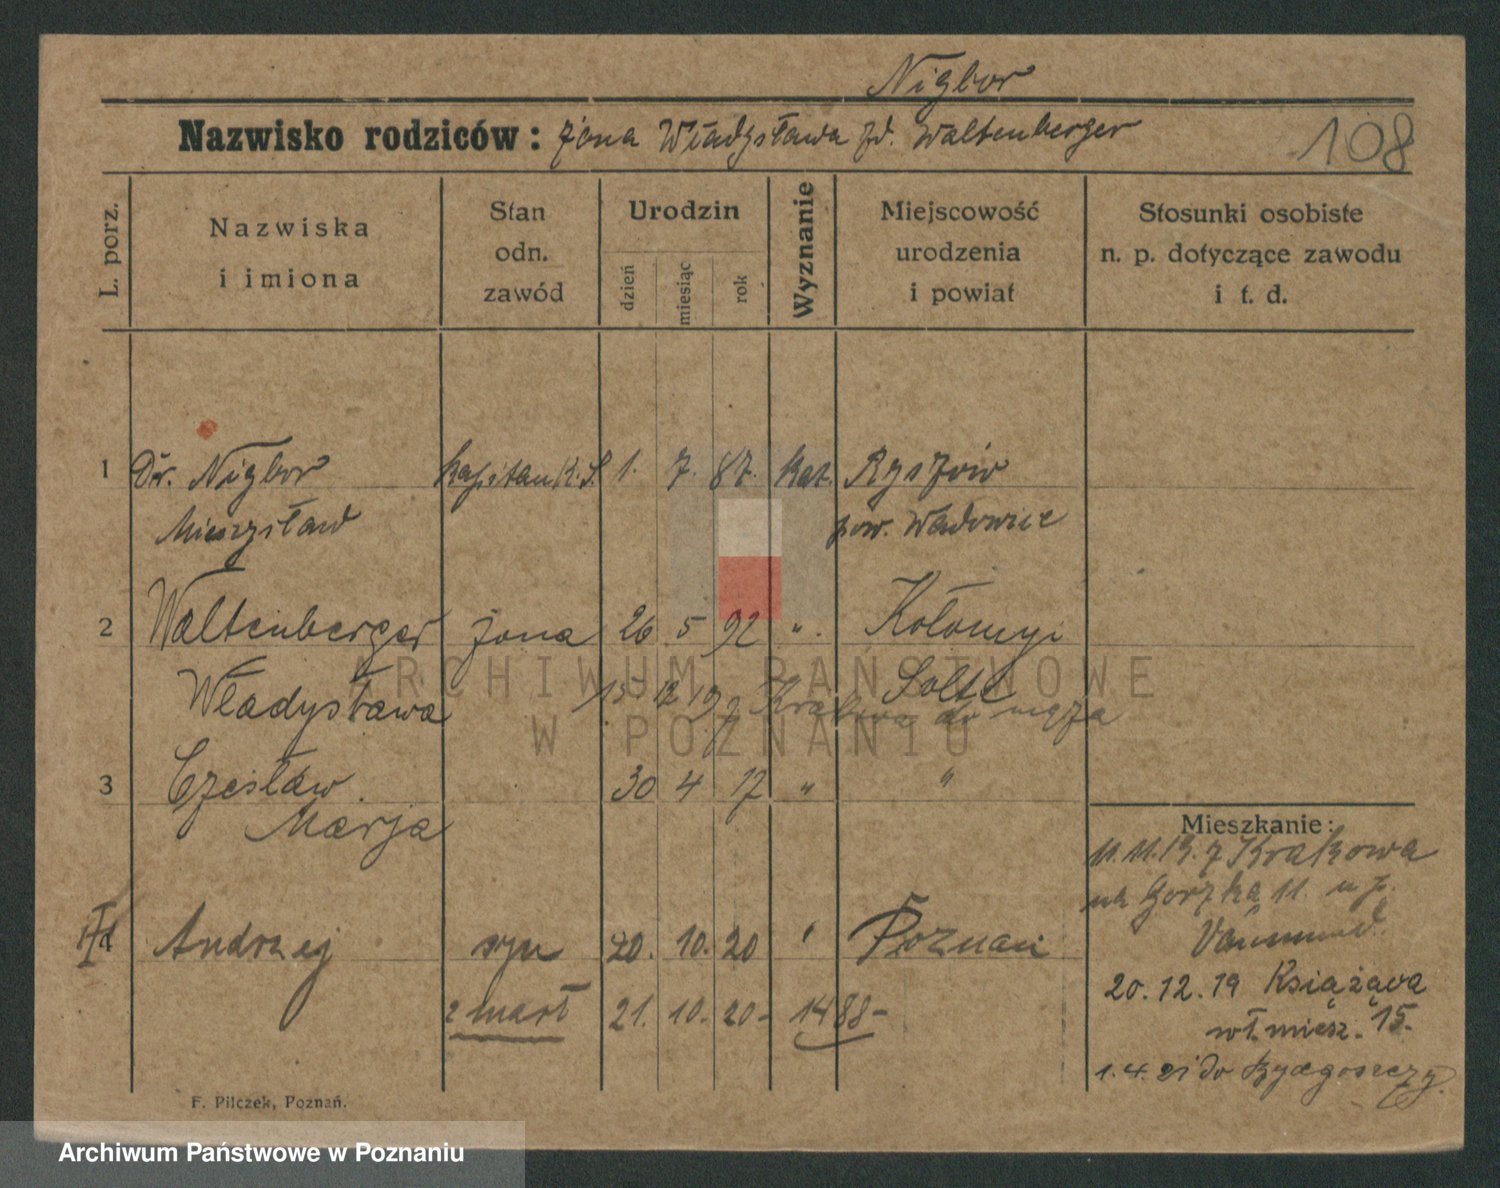 Nigbor
Nazwisko rodziców: żona Władysława zd. Waltenberger
108
L. porz.
Nazwiska
i imiona
Stan
odn.
zawód
Urodzin
dzień
miesiąc
rok
Wyznanie
Miejscowość
urodzenia
i powiat
Stosunki osobiste
n. p. dotyczące zawodu
i t. d.
1 Dr. Nigbor kapitan K. S. 1. 7. 87. kat.
Mieczysław pow. Wadowice
2 Waltenberger żona 26 5 92 ". Kołomyi
Władysława 12 19 Krakowa do męża
3 Czesław 30 4 17 " "
Marja
Mieszkanie:
11.11.19. z Krakowa
11. u p.
4 Andrzej syn 20. 10. 20 " Poznań
20.12.19 Książąca
zmarł 21. 10. 20- 1488-
wł. miesz. 15.
1.4.21 do Bydgoszczy.
F. Pilczek, Poznań.
ARCHIWUM PAŃSTWOWE
W POZNANIU
Archiwum Państwowe w Poznaniu